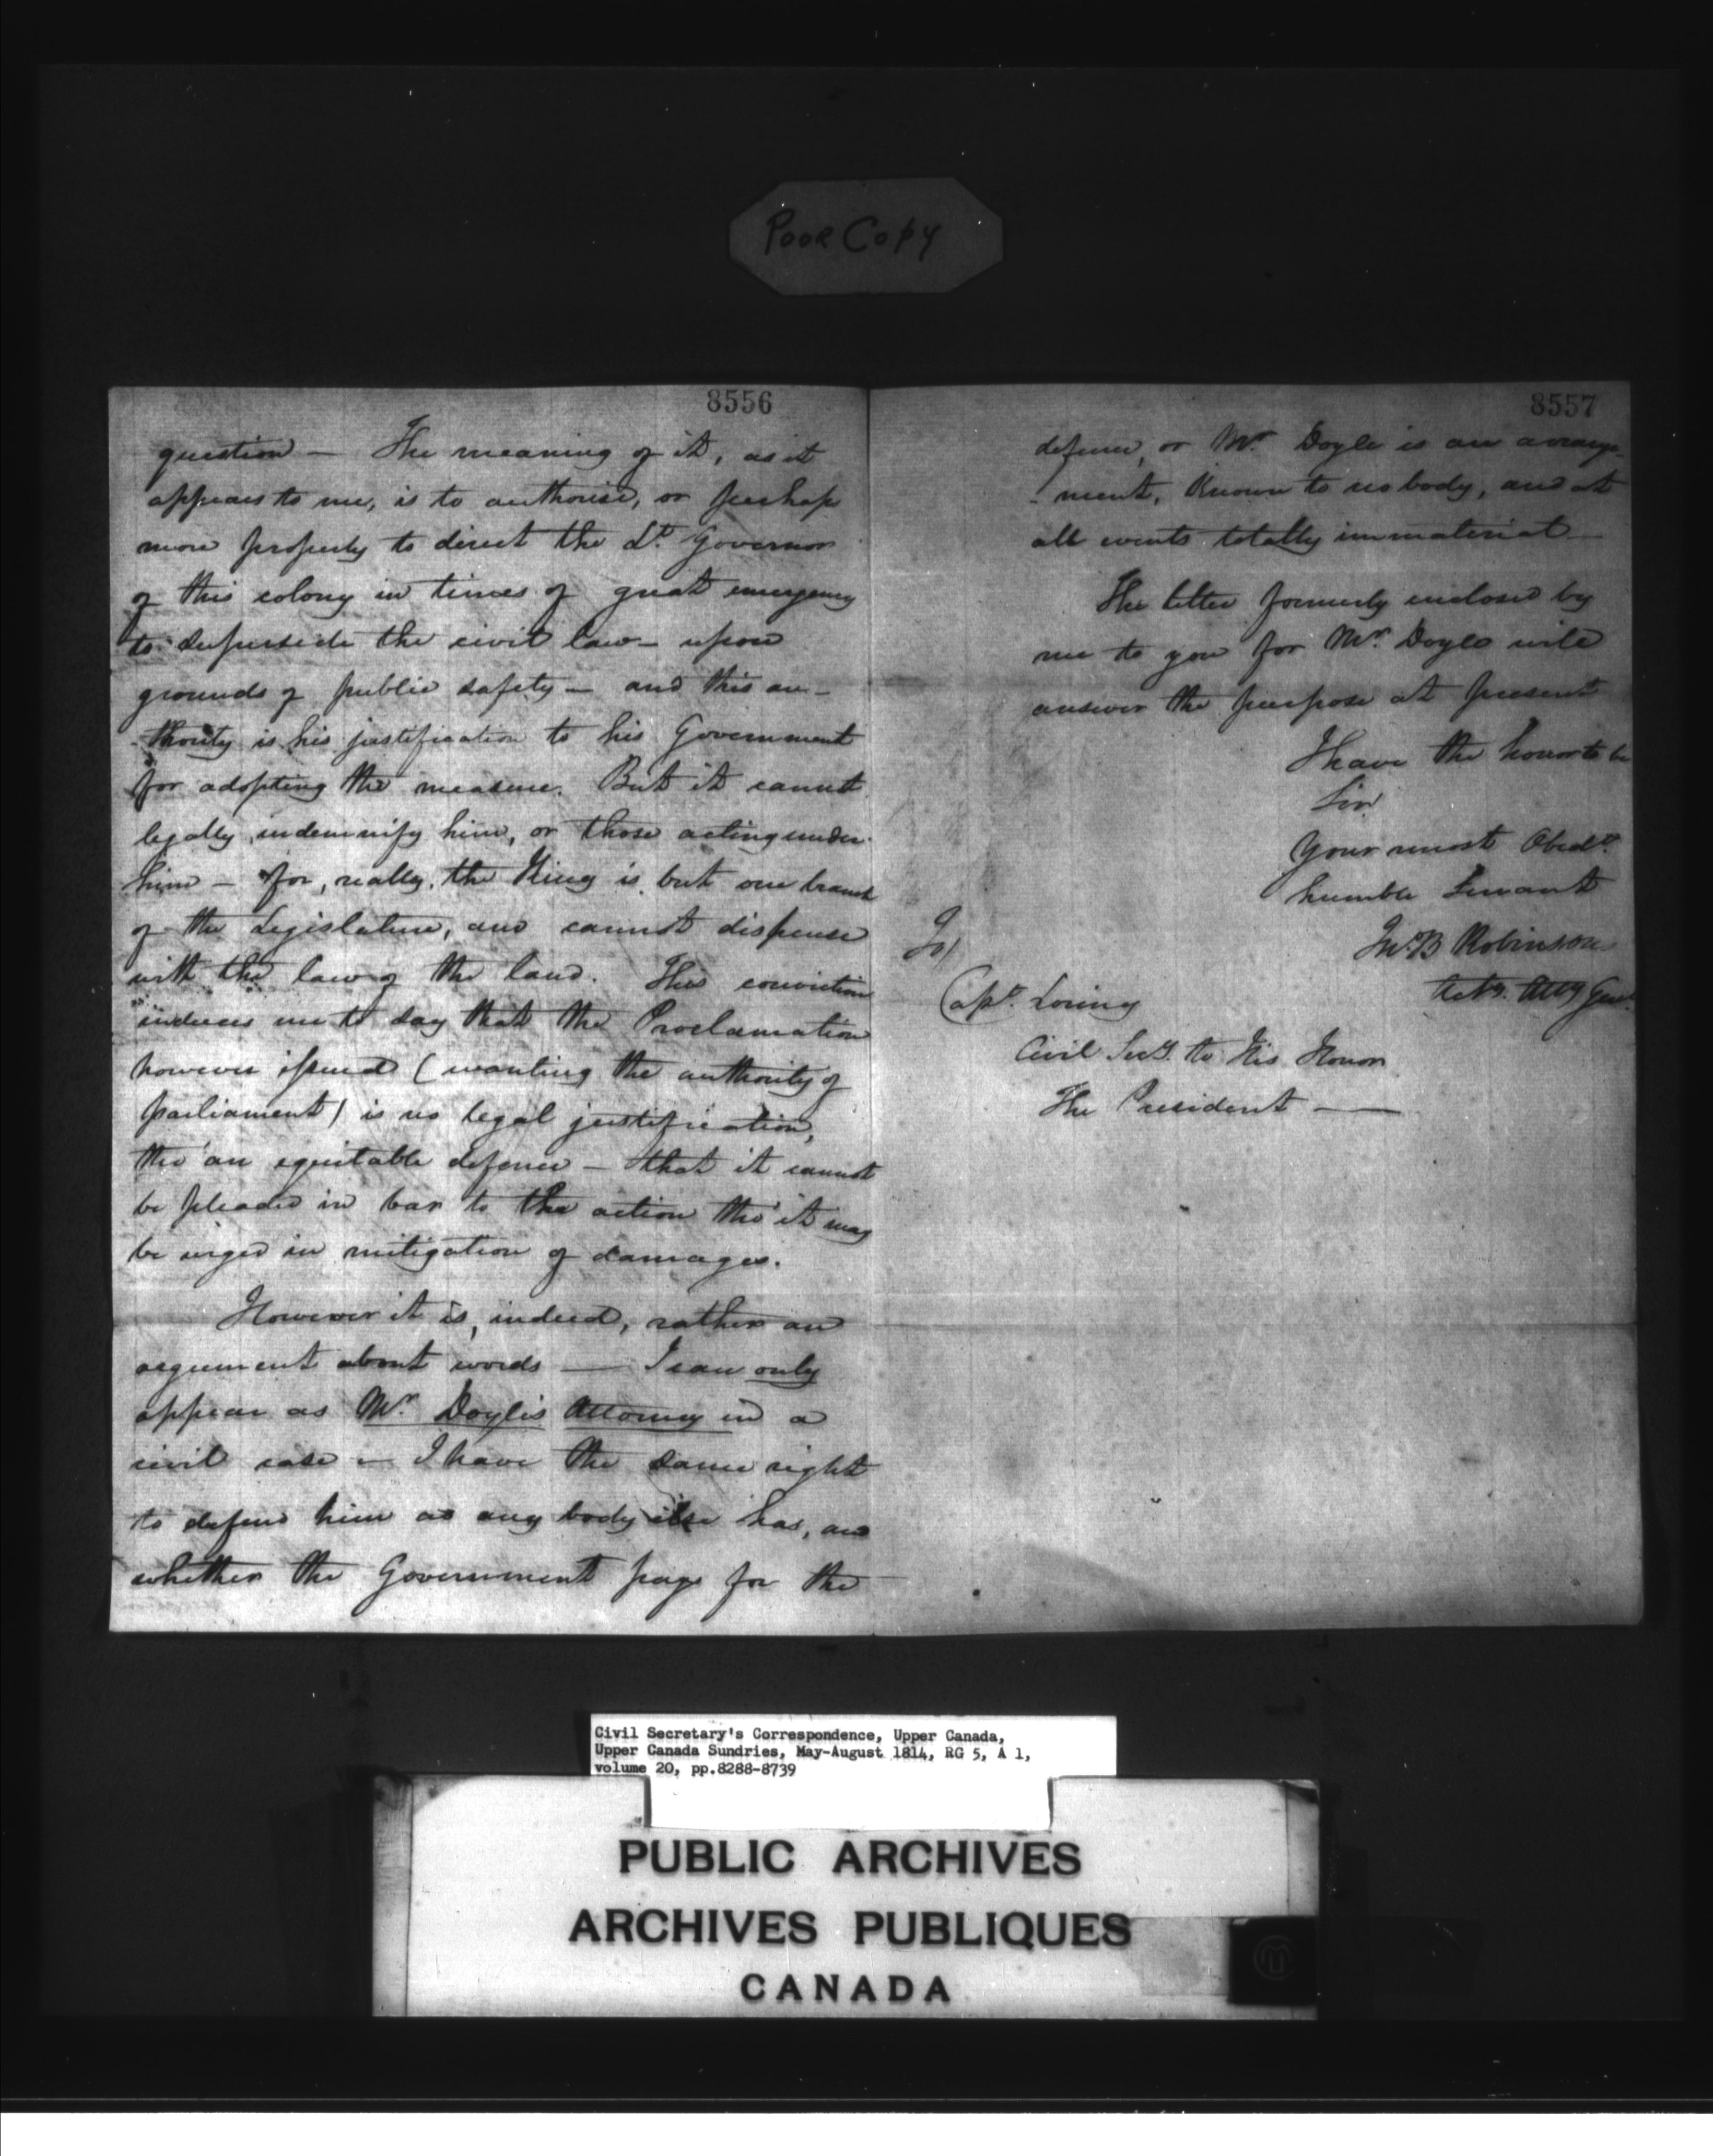 Poor Copy
8556
question — The meaning of it, as it
appears to me, is to authorise, or perhaps
more properly to direct the Lt. Governor
of this colony in times of great emergency
to supersede the civil law — upon
grounds of public safety — and this au-
-thority is his justification to his Government
for adopting the measure. But it cannot
legally indemnify him, or those acting under
him — for, really, the King is but one branch
of the Legislature, and cannot dispense
with the law of the land. This conviction
induces me to say that the Proclamation
however issued (wanting the authority of
parliament) is no legal justification,
tho' an equitable defence — that it cannot
be pleaded in bar to the action tho' it may
be urged in mitigation of damages.
However it is, indeed, rather an
argument about words — I can only
appear as Mr. Doyle's Attorney in a
civil case — I have the same right
to defend him as any body else has, and
whether the Government pays for the
8557
defence, or Mr. Doyle is an arrange-
-ment, known to nobody, and at
all events totally immaterial —
The letter formerly enclosed by
me to you for Mr. Doyle will
answer the purpose at present
I have the honor to be
Sir
Your most Obedt.
humble Servant
Jno. B Robinson
Actg. Atty Genl.
To/
Capt. Loring
Civil Secy. to His Honor
The President —
Civil Secretary's Correspondence, Upper Canada,
Upper Canada Sundries, May-August 1814, RG 5, A 1,
volume 20, pp.8288-8739
PUBLIC ARCHIVES
ARCHIVES PUBLIQUES
CANADA